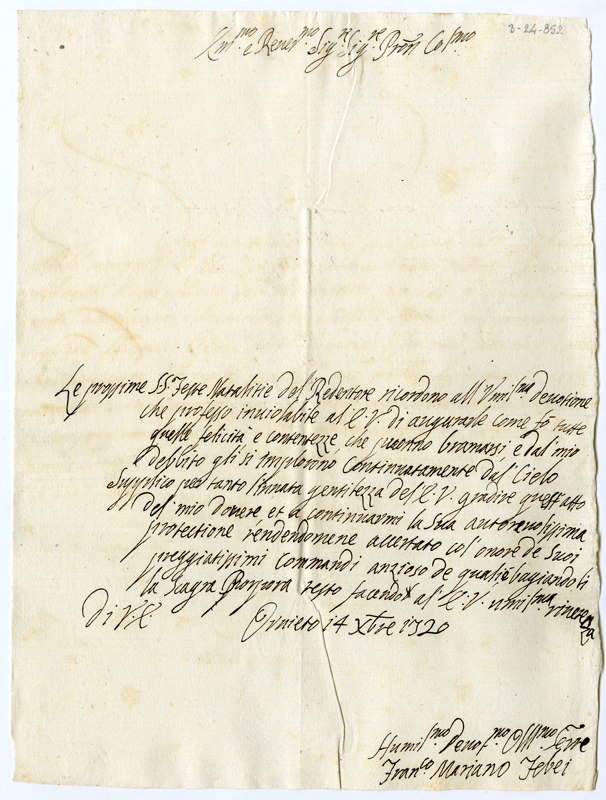 3-24-852
Em.mo e Rever.mo Sig.re Sig.re Pron Col.mo
Le prossime S.S. Feste Natalitie del Redentore ricordono all'Umil.ma devotione
che professo inviolabile al E.V. di augurarle come fò tutte
quelle felicità e contentezze che puonno bramarsi, e dal mio
debbito gli si implorono continuatamente dal Cielo
Supplico per tanto l'innata gentilezza del E.V. gradire quest'atto
del mio dovere et a continuarmi la sua autorevolissima
protectione rendendomene accertato col'onore de Suoi
preggiatissimi commandi anzioso de quali e bagiandoli
la Sagra Porpora resto facendo al E.V. umil.ma riverenza
Di V.E. Orvieto 14 Xbre 1720
Humil.mo Devot.mo Oss.mo Serre
Fran.co Mariano Febei